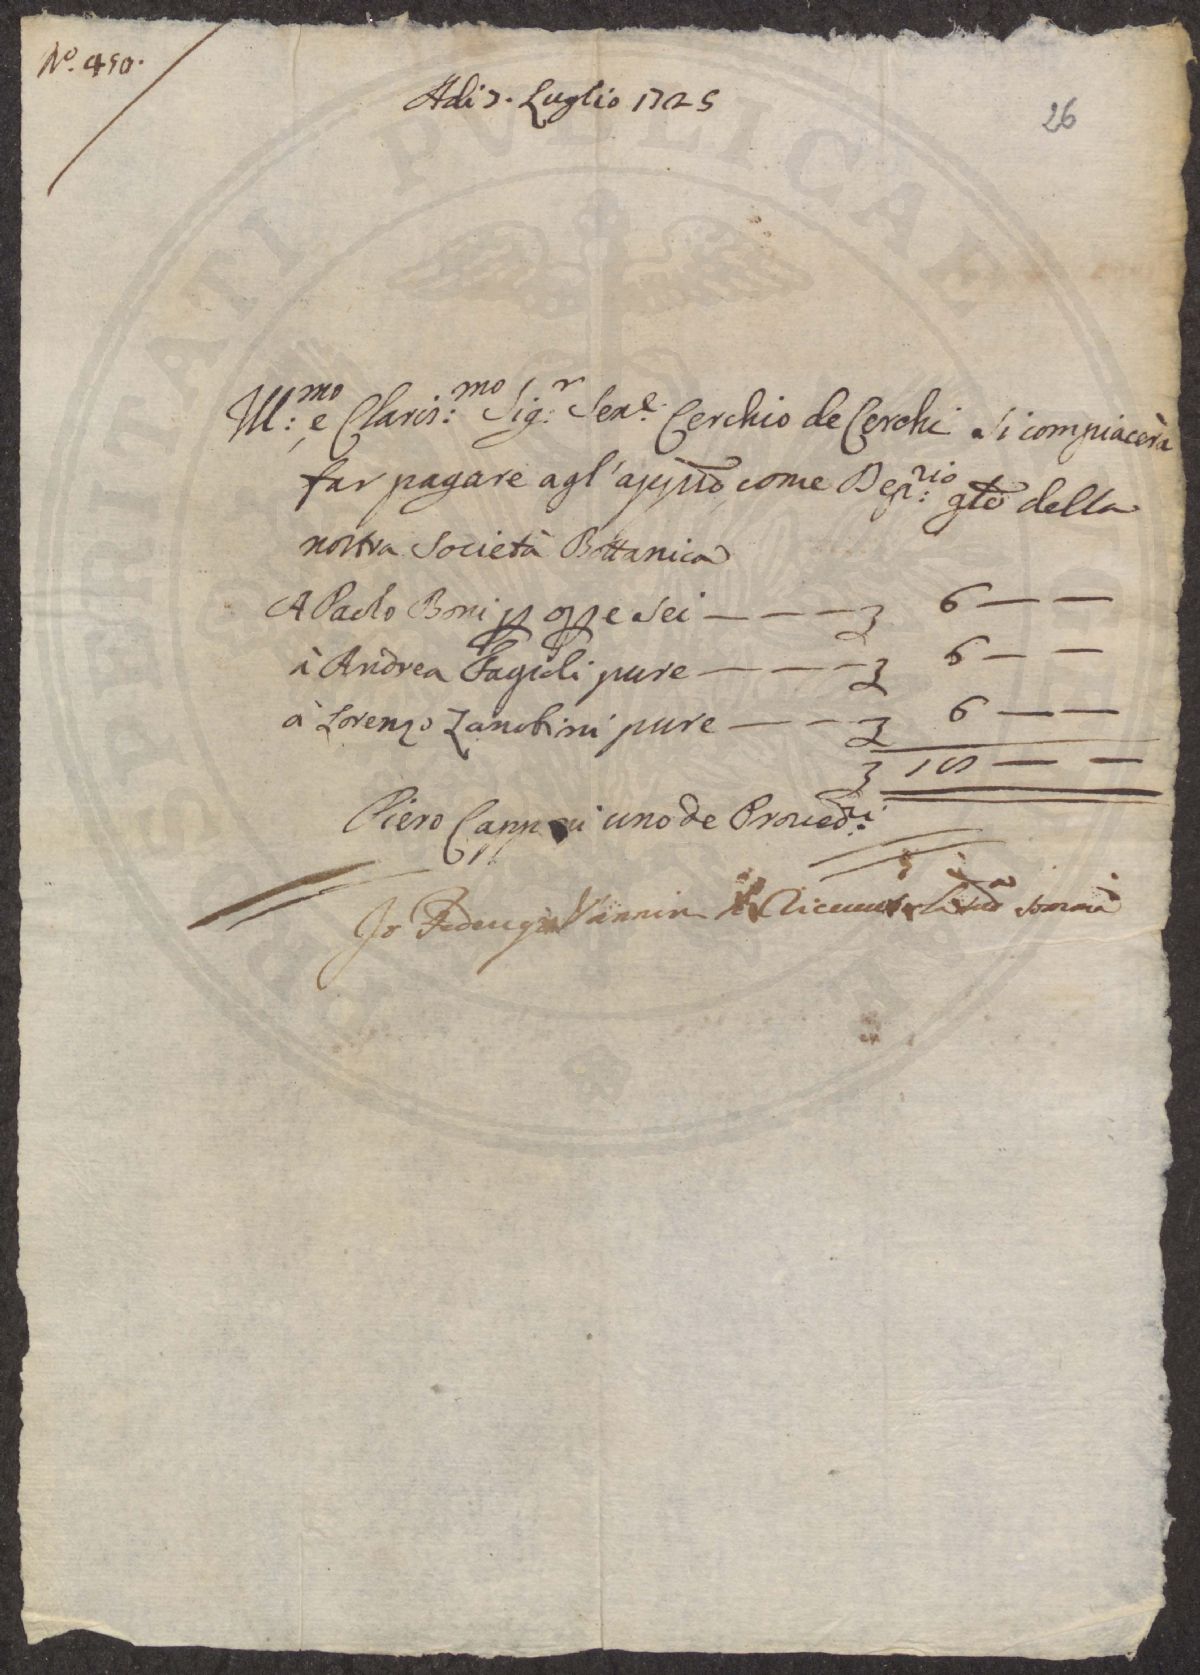 N.º 450.
Adi 7. Luglio 1725
26
Ill:mo e Claris:mo Sig:r Sen.e Cerchio de Cerchi si compiacerà
far pagare agl'app.ti come Dep:rio gle della
nostra Società Bottanica
A Paolo Boni p opre sei — — — 6 — —
à Andrea Fagioli pure — — — 6 — —
à Lorenzo Zanobini pure — — — 6 — —
18 — —
Piero Capponi uno de Proued:ri
Io Federigo Vannini ò Riceuuto la sud.a somma